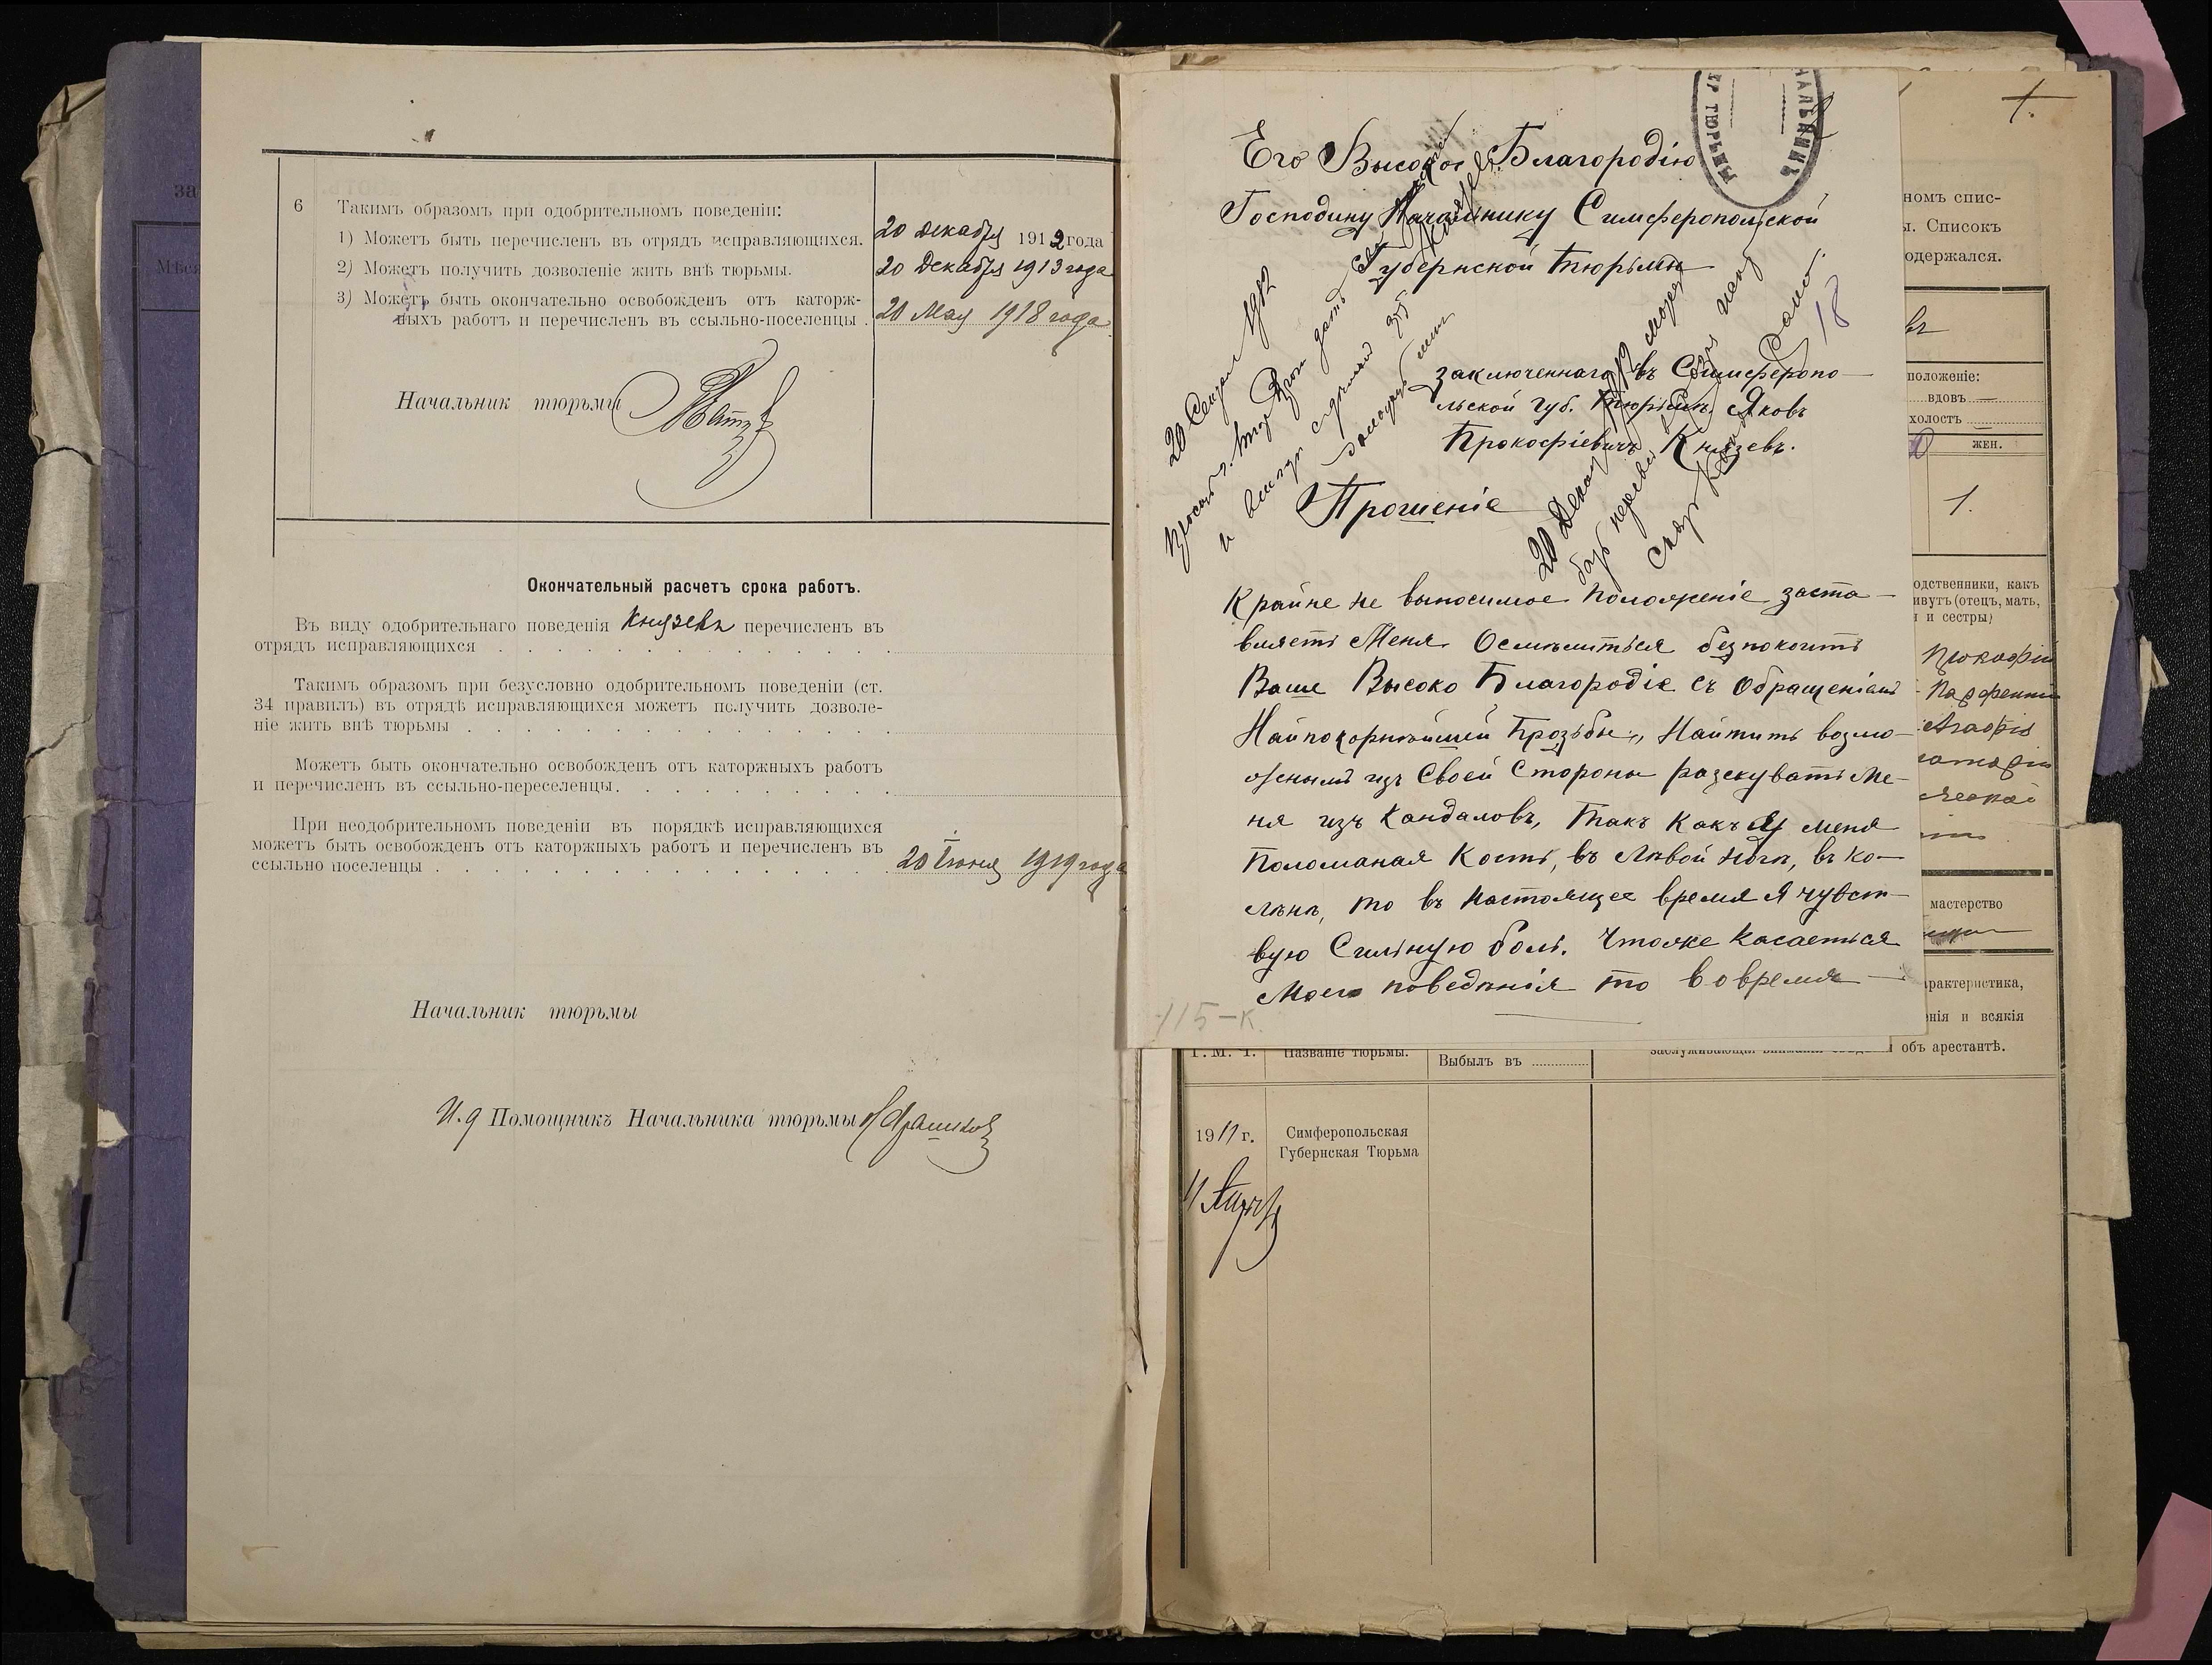 за
Мѣся
6
Такимъ образомъ при одобрительномъ поведеніи:
1) Можетъ быть перечисленъ въ отрядъ исправляющихся.
20 декабря 1912 года
2) Можетъ получить дозволеніе жить внѣ тюрьмы.
20 Декабря 1913 года
3) Можетъ быть окончательно освобожденъ отъ каторж-
ныхъ работъ и перечисленъ въ ссыльно-поселенцы .
20 Мая 1918 года
Начальник тюрьмы
Окончательный расчетъ срока работъ.
Въ виду одобрительнаго поведенія Князевъ перечисленъ въ
отрядъ исправляющихся
Такимъ образомъ при безусловно одобрительномъ поведеніи (ст.
34 правилъ) въ отрядѣ исправляющихся можетъ получить дозволе-
ніе жить внѣ тюрьмы
Можетъ быть окончательно освобожденъ отъ каторжныхъ работъ
и перечисленъ въ ссыльно-переселенцы.
При неодобрительномъ поведеніи въ порядкѣ исправляющихся
можетъ быть освобожденъ отъ каторжныхъ работъ и перечисленъ въ
ссыльно поселенцы
20 Іюня 1919 года
Начальник тюрьмы
И. д Помощникъ Начальника тюрьмы
Его Высокое Благородію
Господину Начальнику Симферопольской
Губернской Тюрьмы
18
заключеннаго въ Симферопо-
льской Губ. Тюрьмѣ, Яковъ
Прокофіевичъ Князевъ.
Прошеніе
Крайне не выносимое положеніе заста-
вляетъ Меня Осмѣлиться безпокоить
Ваше Высоко Благородіе съ Обращеніемъ
Найпокорнѣйшей Прозьбы, Найтить возмо-
жнымъ изъ Своей Стороны разскувать Ме-
ня изъ Кандаловъ, Такъ Какъ у меня
Поломаная Кость, въ лѣвой ногѣ, въ ко-
лѣнѣ, то въ настоящее время я чувст-
вую Сильную боль. Чтоже Касаеться
Моего поведѣнія то вовремя
115-к.
1.
номъ спис-
ы. Списокъ
одержался.
положеніе:
вдовъ
холостъ
жен.
1.
одственники, какъ
ивутъ (отецъ, мать,
и сестры)
Прокофій
мастерство
арактеристика,
нія и всякія
объ арестантѣ.
Г. М. Ч.
Названіе тюрьмы.
Выбылъ въ
1911 г.
Симферопольская
Губернская Тюрьма